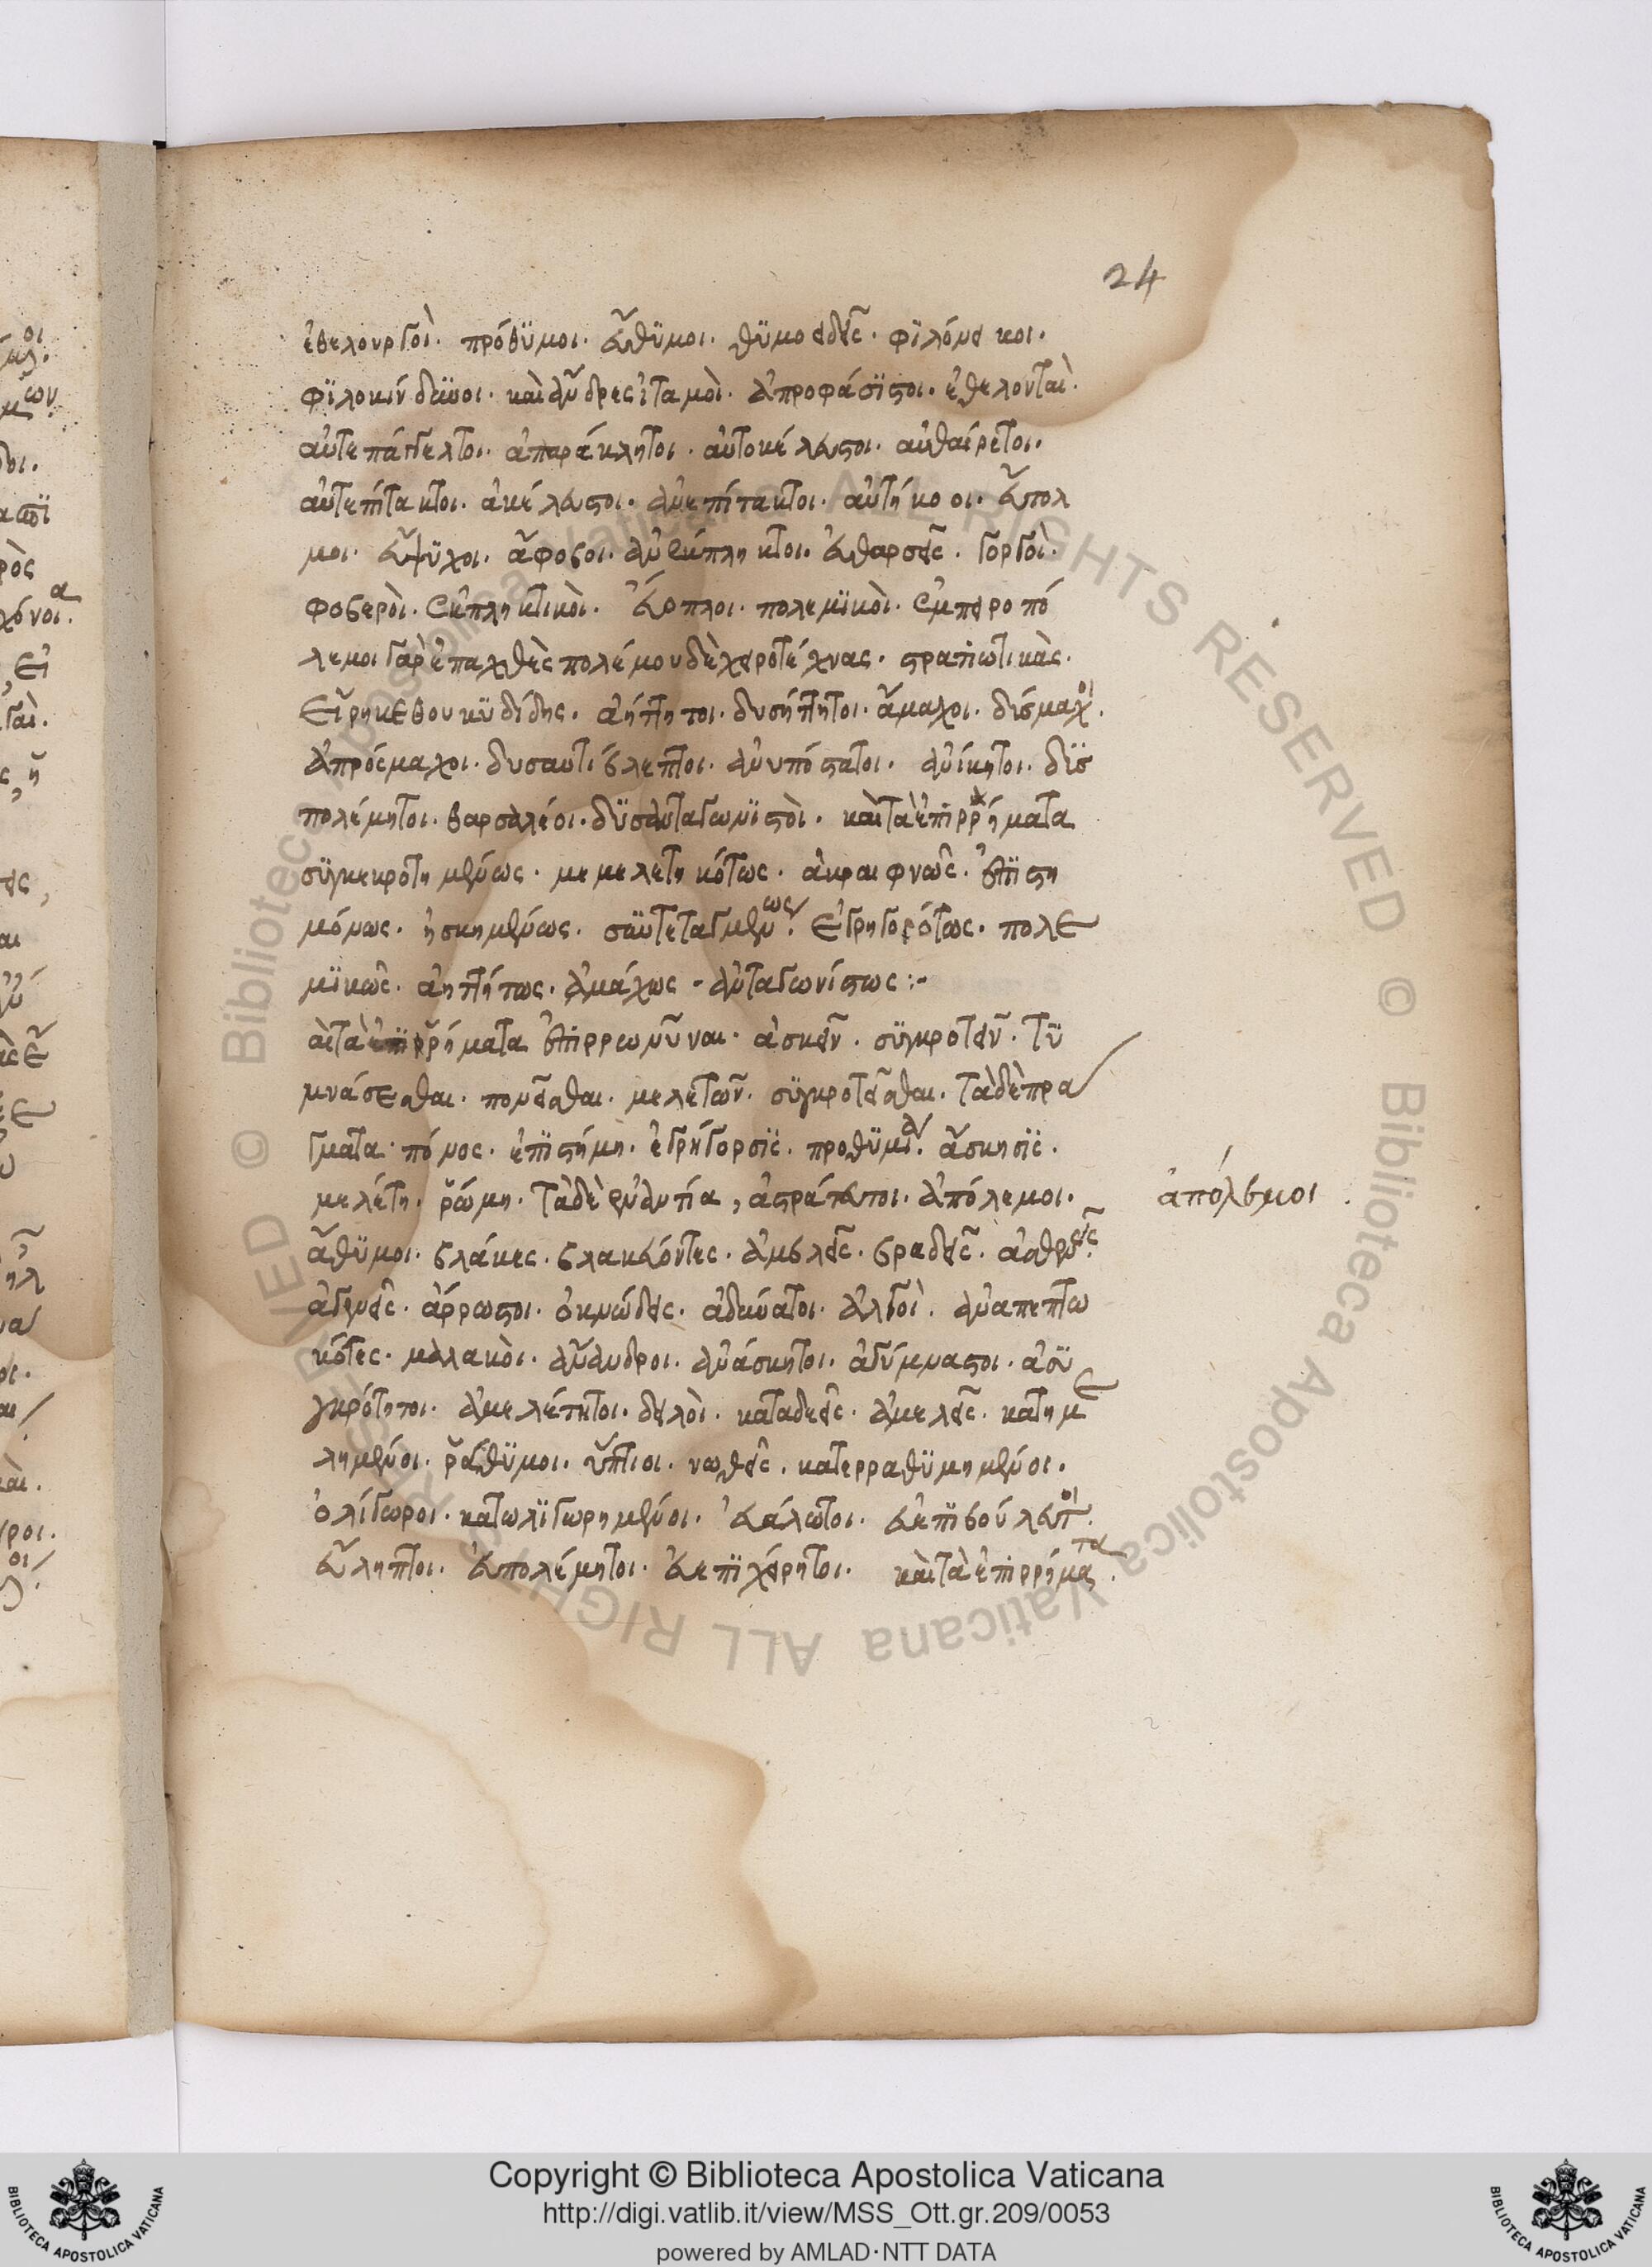 24
ἐθελουργοὶ. πρόθϋμοι. εὔθϋμοι. θϋμοειδεῖς. φϊλόνει κοι.
φϊλοκίν δϋνοι. καὶ ἄνδρες ἰταμοὶ. ἀπροφάσϊστοι. ἐθελονταὶ.
αὐτεπάγγελτοι. ἀπαράκλητοι. αὐτοκέλευστοι. αὐθαίρετοι.
αὐτεπίτακτοι. ἀκέλευστοι. ἀνεπίτακτοι. αὐτήκοοι. εὔτολ
μοι. εὔψϋχοι. ἄφοβοι. ἀνέκπληκτοι. εὐθαρσεῖς. γοργοὶ.
φοβεροὶ. ἐκπληκτικοὶ. εὔοπλοι. πολεμϊκοὶ. ἐμπειροπό
λεμοι γὰρ ἐπαχθὲς πολέμου δὲ χειροτέχνας. στρατιωτικὰς.
εἴρηκε θουκϋδίδης. ἀήττητοι. δυσήττητοι. ἄμαχοι. δύσμαχοι.
ἀπρόσμαχοι. δυσαντίβλεπτοι. ἀνυπόστατοι. ἀνίκητοι. δϋσ
πολέμητοι. θαρσαλέοι. δϋσανταγωνϊστοὶ. καὶ τὰ ἐπιρρήματα
σϋγκεκροτημένως. μεμελετηκότως. ἀκραιφνῶς. ἐπϊστη
μόνως. ἠσκημένως. σϋντεταγμένως. ἐγρηγορότως. πολε
μϊκῶς. ἀηττήτως. ἀμάχως - ἀνταγωνίστως :-
αὶ τὰ ἐπϊρρήματα ἐπιρρωνῦναι. ἀσκεῖν. σϋγκροτεῖν. γϋ
μνάσεσθαι. πονεῖσθαι. μελετῶν. σϋγκροτεῖσθαι. τὰ δὲ πρα
γματα. πόνος. ἐπϊστήμη. ἐγρήγορσϊς. προθϋμία. ἄσκησϊς.
μελέτη. ῥώμη. τὰ δὲ ἐναντία, ἀστράτευτοι. ἀπόλεμοι.
ἀπόλεμοι.
ἄθϋμοι. βλάκες. βλακεύοντες. ἀμβλεῖς. βραδεῖς. ἀσθενεῖς.
ἀγενεῖς. ἀρρωστοι. ὀκνώδεις. ἀδύνατοι. ἀλγοὶ. ἀναπεπτω
κότες. μαλακοὶ. ἄνανδροι. ἀνάσκητοι. ἀγύμναστοι. ἀσϋ
γκρότητοι. ἀμελέτητοι. δειλοὶ. καταδεεῖς. ἀμελεῖς. κατημε
λημένοι. ῥάθϋμοι. ὕπτιοι. νωθεῖς. κατερραθϋμημένοι.
ὀλίγωροι. κατωλϊγωρημένοι. εὐάλωτοι. εὐεπϊβούλευτοι.
εὔληπτοι. εὐπολέμητοι. εὐεπϊχείρητοι. καὶ τὰ ἐπιρρήματα.
Copyright © Biblioteca Apostolica Vaticana
http://digi.vatlib.it/view/MSS_Ott.gr.209/0053
powered by AMLAD·NTT DATA